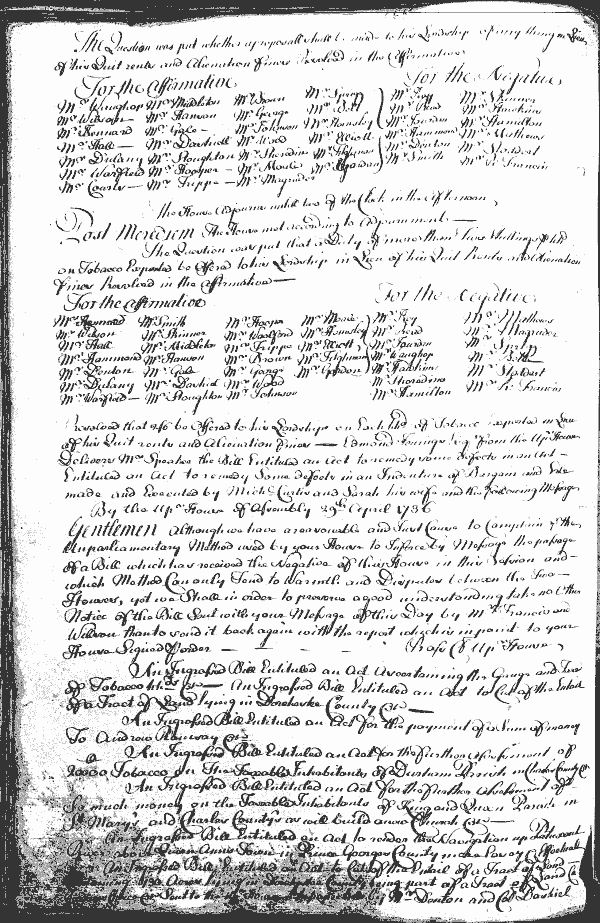 The Question was put whether a proposall shall be made to his Lordship of any thing in Lieu
of his Quit rents and Alienation fines Resolved in the Affirmative
For the Affirmative For the Negative
Mr Vaughop Mr Middleton Mr Brown Mr Sprigg Mr Key Mr Skinner
Mr Wilson Mr Hanson Mr George Mr Bell Mr Read Mr Hawkins
Mr Kennard Mr Gale Mr Johnson Mr Hamsley Mr Jordan Mr Hamilton
Mr Hall Mr Dashiell Mr Wood Mr Elliott Mr Hammond Mr Mathews
Mr Dulany Mr Stoughton Mr Sheredine Mr Denton Mr
Mr Warfield Mr Hooper Mr Mr Gordon Mr Smith Mr P. Francis
Mr Mr Trippe Mr Magruder
The House Adjourns untill two of the Clock in the Afternoon
Post Meridiem The House met according to Adjournment
The Question was put that a Duty of more than five shillings
on Tobacco Exported be Offered to his Lordship in Lieu of his Quit Rents and Alienation
fines Resolved in the Affirmative
For the Affirmative For the Negative
Mr Kennard Mr Smith Mr Hooper Mr Mr Key Mr Mathews
Mr Wilson Mr Skinner Mr Woolford Mr Hamsley Mr Read Mr Magruder
Mr Hall Mr Middleton Mr Trippe Mr Elliott Mr Jordan Mr Sprigg
Mr Hammond Mr Hanson Mr Brown Mr Tilghman Mr Vaughop Mr Bell
Mr Denton Mr Gale Mr George Mr Gordon Mr Hawkins Mr
Mr Dulany Mr Dashiel Mr Wood Mr Sheredine Mr P. Francis
Mr Warfield Mr Stoughton Mr Johnson Mr Hamilton
Resolved that be Offered to his Lordship on Each Hhd of Tobacco Exported in Lieu
of his Quit rents and Alienation fines Edmund Jenings Esq from the Upr House
Delivers Mr Speaker the Bill Entituled an Act to remedy some Defects in an Act
Entituled an Act to remedy Some defects in an Indenture of Bargain and Sale
made and Executed by Michl Curtis and Sarah his wife and the following Message
By the Upr House of Assembly 29th April 1736
Gentlemen Although we have a reasonable and Just Cause to Complain of the
Unparliamentary Method used by your House to Inforce by Message the passage
of a Bill which has received the Negative of this House in this Session and
which Method Can only Tend to Warmth and Disputes between the Two
Houses, yet we Shall in order to preserve a good understanding take no other
Notice of the Bill Sent with your Message of this Day by Mr Francis and
Wilson than to send it back again with the report which is in point to your
House Signed order Ross Cl Up House
An Ingrossed Bill Entituled an Act Ascertaining the Gauge and Tare
of Tobacco Hhds An Ingrossed Bill Entituled an Act to Cut of the Entail
of a Tract of Land lying in Dorchester County &c
An Ingrossed Bill Entituled an Act for the payment of a Sum of money
To Andrew
An Ingrossed Bill Entituled an Act for the further Assessment of
Tobacco on The Taxable Inhabitants of Durham Parish in Charles County
An Ingrossed Bill Entituled an Act for the further Assessment of
So much money on the Taxable Inhabitants of King and Queen Parish in
St Mary's and Charles Countys as will build a new Church &c
An Ingrossed Bill Entituled an Act to render the Navigation up Patuxent
River above Queen Anns Town in Prince Georges County more Safe
An Ingrossed Bill Entituled an Act to Cut of the Entail of a Tract of Land
Acres lying in County being part of a Tract of Land
Sent to the House by Mr Denton and Col Dashiel